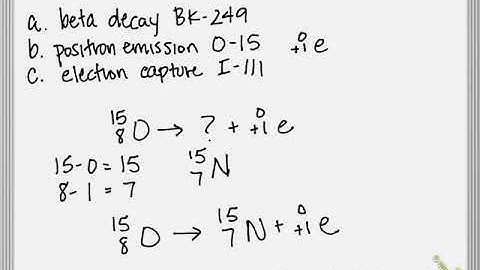 a. beta decay BK-249
b. positron emission O-15 ⁰₊₁e
c. electron capture I-111
¹⁵₈O → ? + ⁰₊₁e
15-0=15 ¹⁵₇N
8-1=7
¹⁵₈O → ¹⁵₇N + ⁰₊₁e